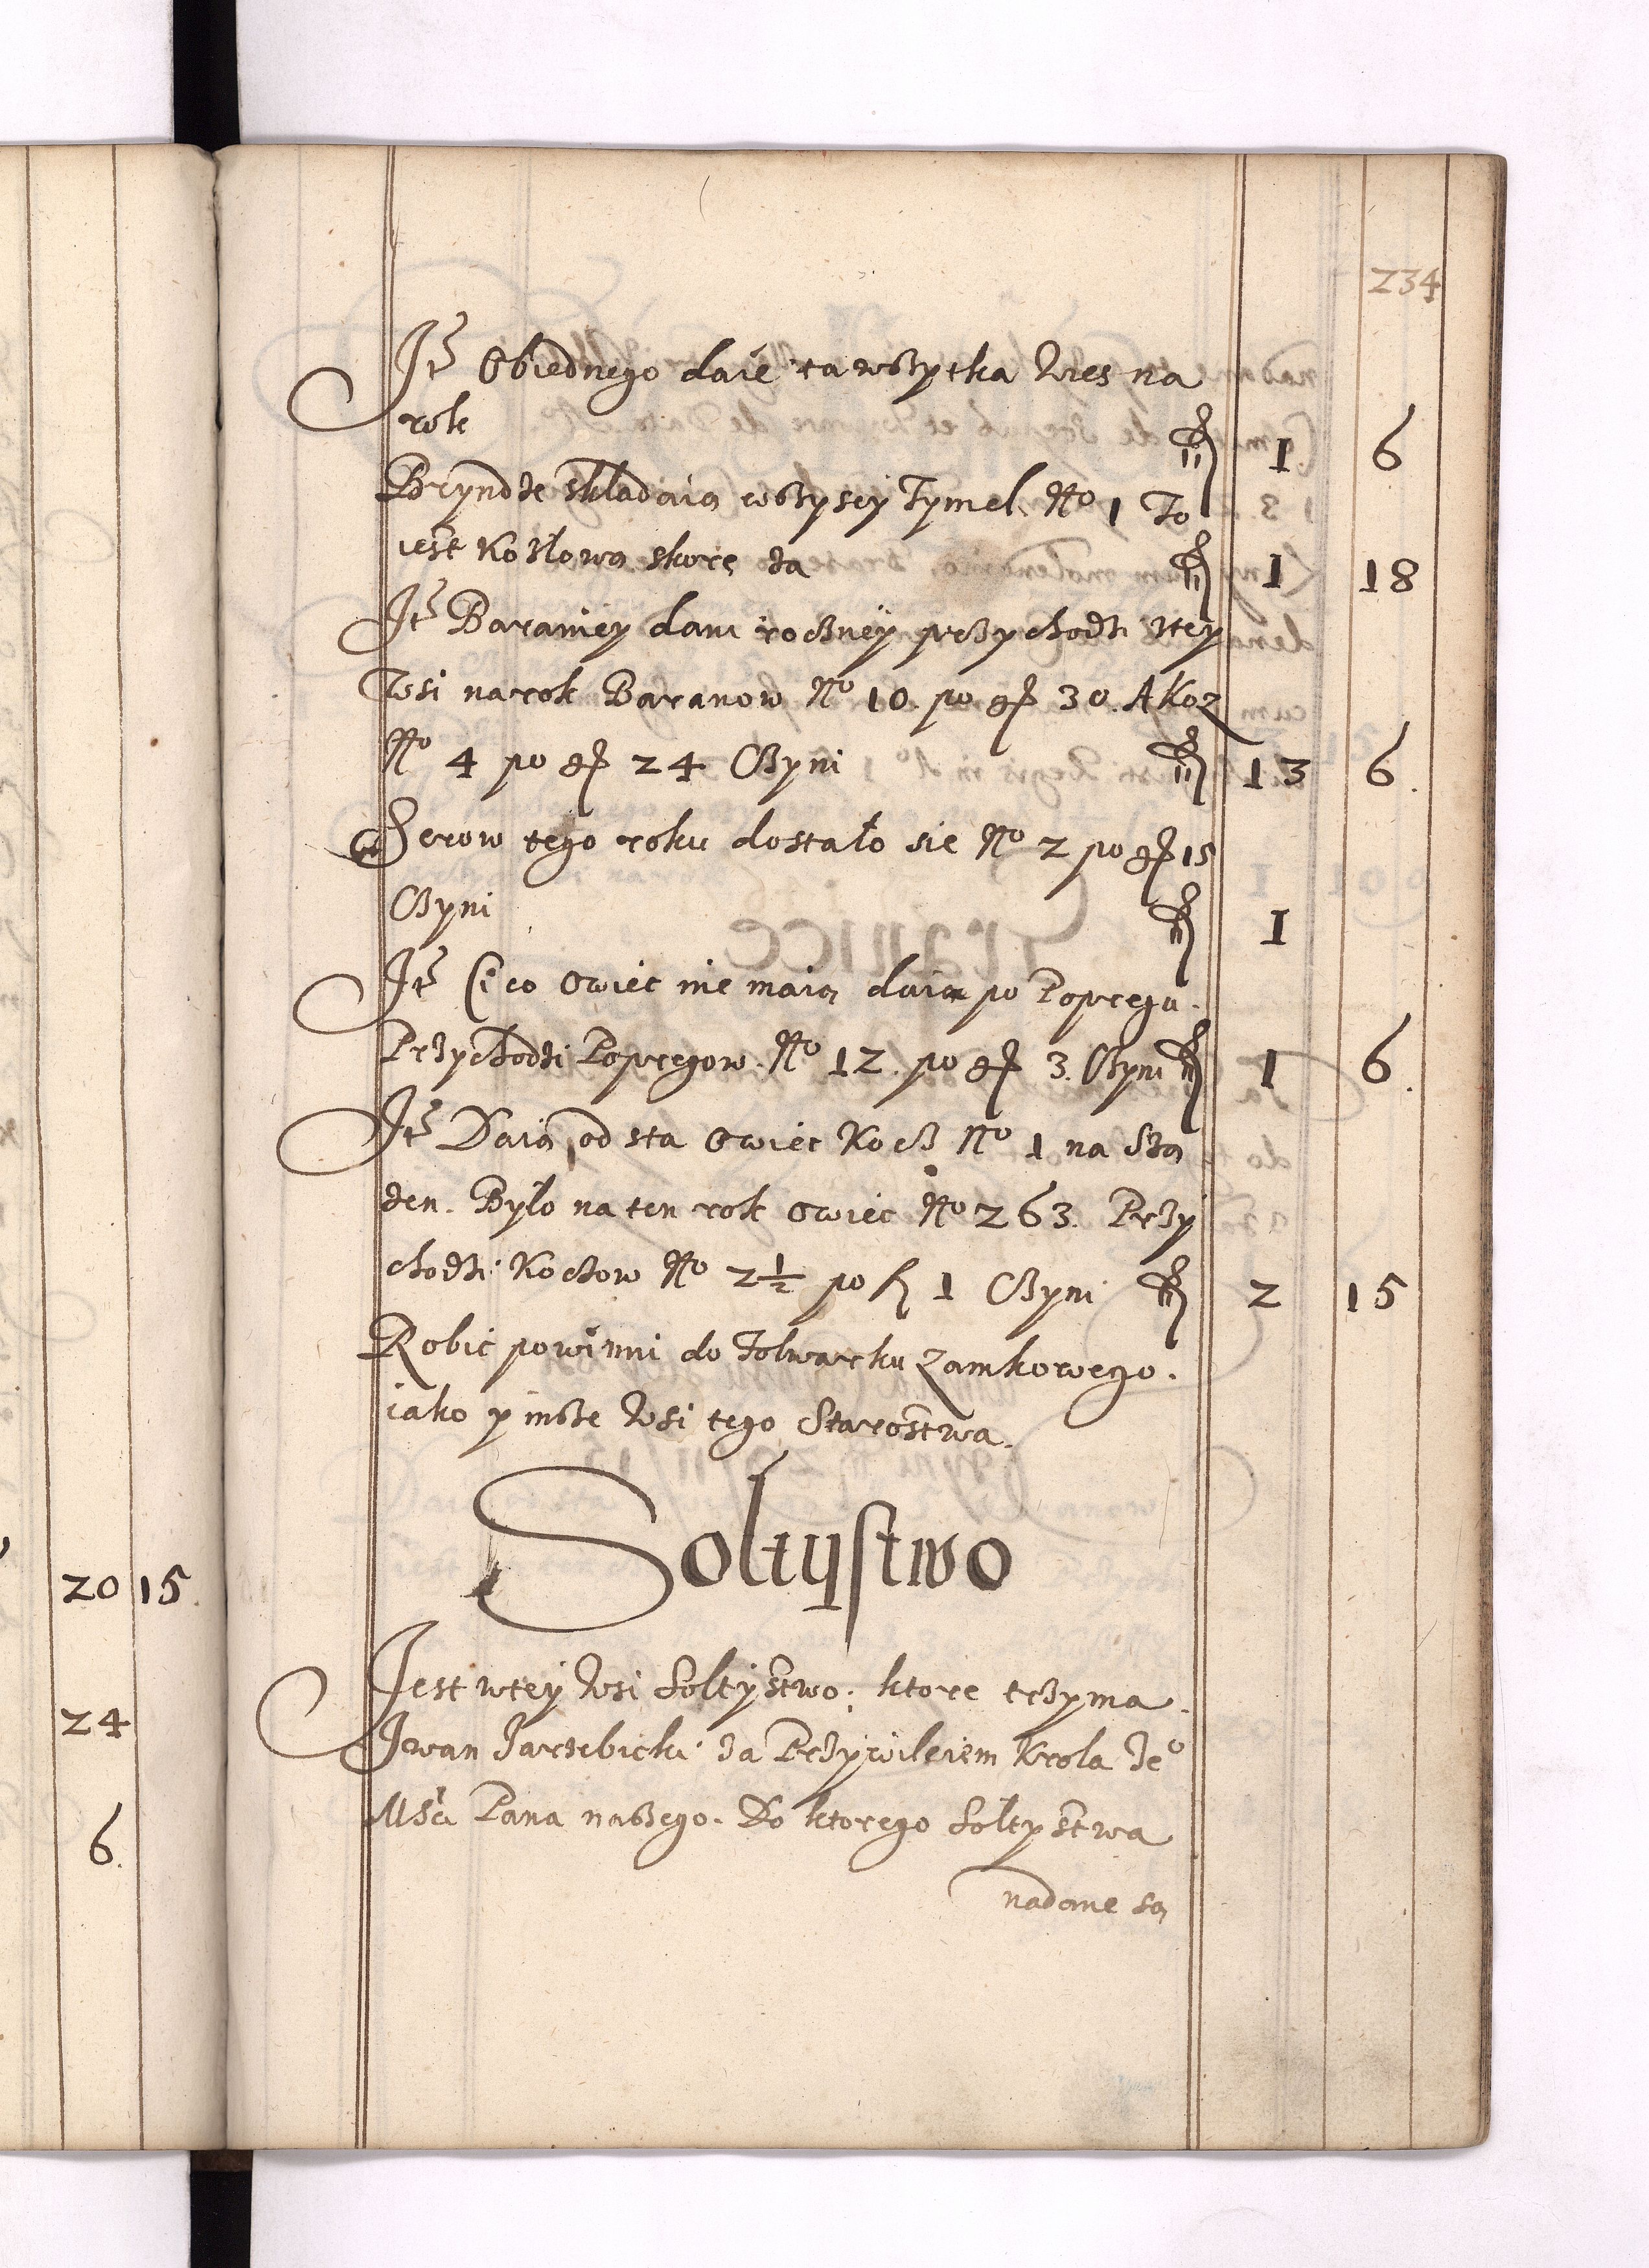 234
It Obiednego daie ta wszytka Wies na
rok fl 1 6
Bryndze składaią wszyscy Tymel. No 1 To
iest Kozłową skorę za fl 1 18
It Baraniey dani roczney przychodzi wtey
Wsi na rok Baranow No 10. po gr 30. A Koz
No 4 po gr 24 Czyni fl 13 6.
Serow tego roku dostało sie No 2 po gr 15
Czyni fl 1
It Ci co Owiec nie maią daią po Popręgu.
Przychodzi Popręgow. No 12. po gr 3. Czyni fl 1 6.
It Daią od sta Owiec Kocz No 1 na Sta
den. Było na ten rok Owiec No 263. Przy
chodzi Koczow No 2½ po fl 1 Czyni fl 2 15
Robić powinni do Folwarku Zamkowego.
iako y insze Wsi tego Starostwa.
Sołtystwo
Jest wtey Wsi Sołtystwo: ktore trzyma.
Iwan Jarzebicki za Przywileiem Krola Jeo
Mści Pana naszego. Do ktorego Sołtystwa
nadane są
20 15.
24
6.